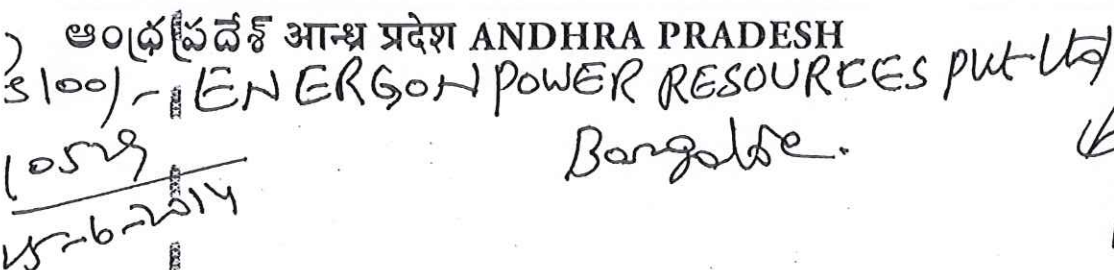 ఆంధ్రప్రదేశ్ आन्ध्र प्रदेश ANDHRA PRADESH
100/- ENERGON POWER RESOURCES Pvt Ltd
Bangalore.